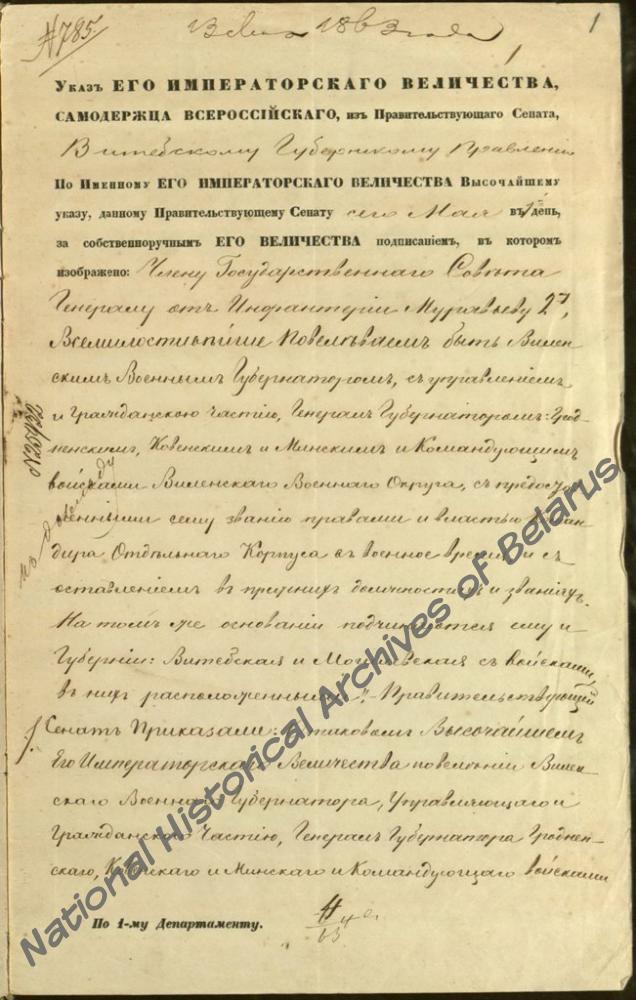 №785.
1863 года
1
Указъ ЕГО ИМПЕРАТОРСКАГО ВЕЛИЧЕСТВА,
САМОДЕРЖЦА ВСЕРОССІЙСКАГО, изъ Правительствующаго Сената,
Витебскому Губернскому Правленію
По Именному ЕГО ИМПЕРАТОРСКАГО ВЕЛИЧЕСТВА Высочайшему
указу, данному Правительствующему Сенату сего Мая въ 1й день,
за собственноручнымъ ЕГО ВЕЛИЧЕСТВА подписаніемъ, въ которомъ
изображено: Члену Государственнаго Совѣта
Генералу отъ Инфантеріи Муравьеву 2му,
Всемилостивѣйше Повелѣваемъ быть Вилен-
скимъ Военнымъ Губернаторомъ, съ управленіемъ
и Гражданскою частію, Генералъ Губернаторомъ: Грод-
ненскимъ, Ковенскимъ и Минскимъ и Командующимъ
войсками Виленскаго Военнаго Округа, съ предостав-
ленными сему званію правами и властью Коман-
дира Отдѣльнаго Корпуса въ военное время и съ
оставленіемъ въ прежнихъ должностяхъ и званіяхъ.
На томъ же основаніи подчиняются ему и
Губерніи: Витебская и Могилевская съ войсками,
въ нихъ расположенными". Правительствующій
Сенатъ Приказали: о таковомъ Высочайшемъ
Его Императорскаго Величества повелѣніи Вилен-
скаго Военнаго Губернатора, Управляющаго и
Гражданскою Частію, Генералъ Губернатора Гроднен-
скаго, Ковенскаго и Минскаго и Командующаго войсками
По 1-му Департаменту.
№25732
National Historical Archives of Belarus